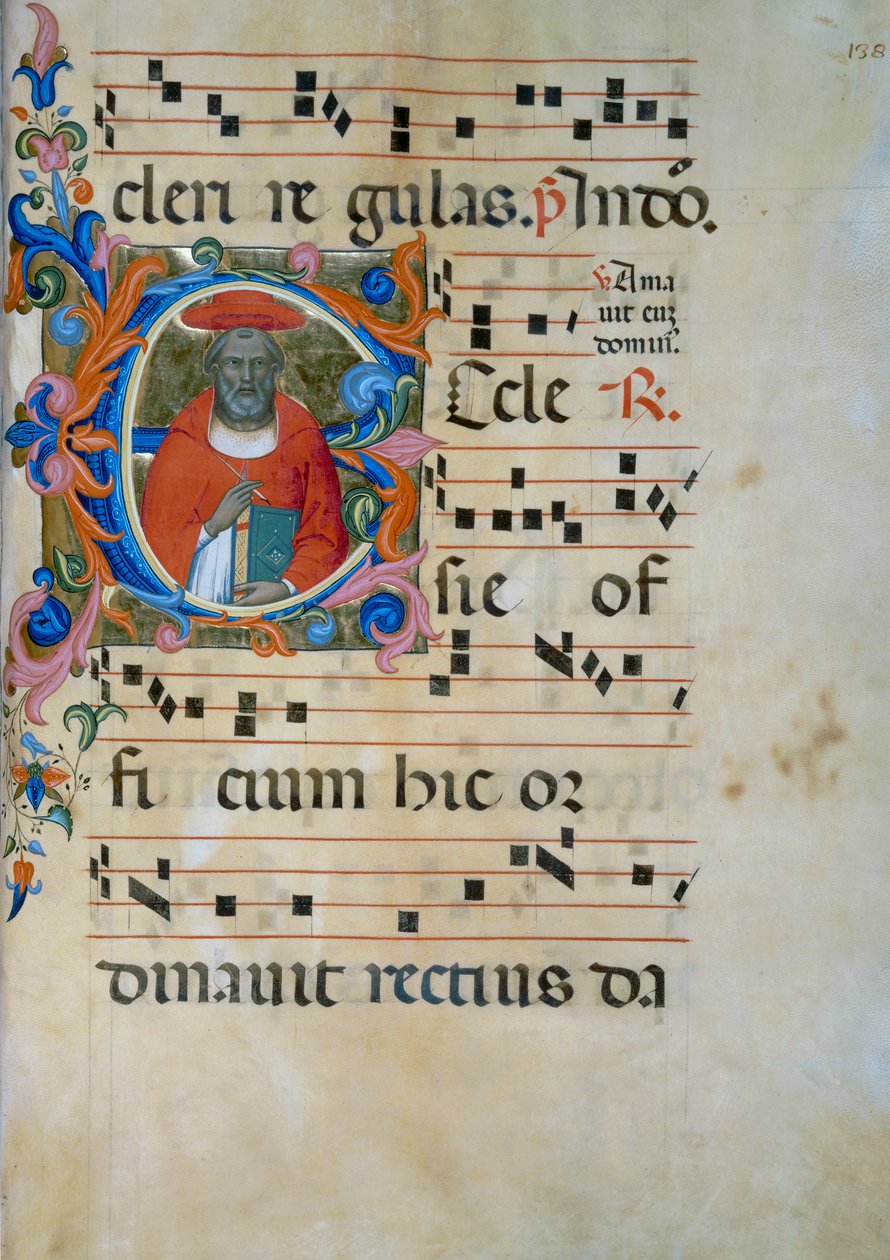 138
cleri re gulas. p̄ Indō.
℣. Ama
uit eum
domin̄.
Eccle ℟.
sie of
fi cium hic or
dinauit rectius da